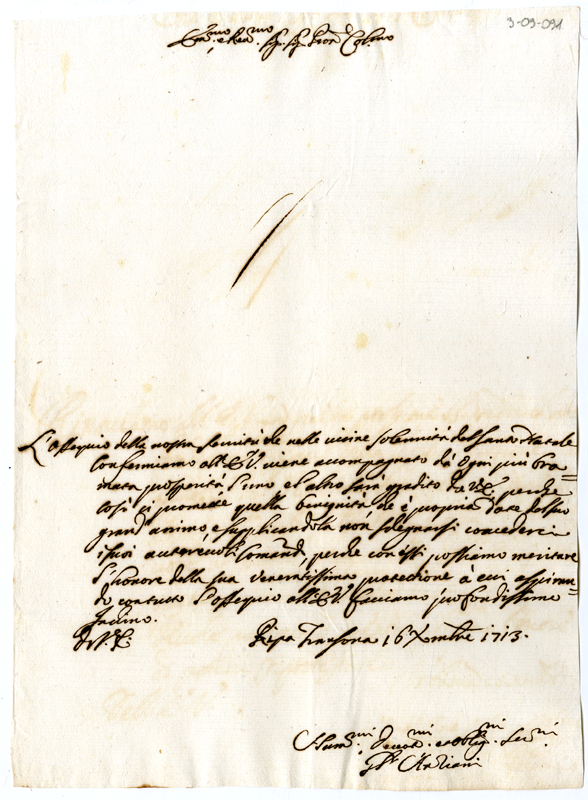 3-09-091
Em.mo e Rev.mo Sig. Sig. Pron Col.mo
L'ossequio della nostra servitù che nelle vicine solennità del Santo Natale
confermiamo all'E.V. viene accompagnato da ogni più bra=
mata prosperità l'uno e l'altro sarà gradito da V.E. perche
così ci promette quella benignità che è propria dote del suo
grand'animo e supplicandola non sdegnarsi concederci
i suoi autorevoli comandi, perche con essi possiamo meritare
l'honore della sua veneratissima protezione à cui aspiran=
do con tutto l'ossequio all'E.V. facciamo profondissimo
inchino.
Di V.E.
Ripa Transona 16 Xmbre 1713.
Hum.mi Devot.mi et obblig.mi Ser.ri
Gl' Antiani